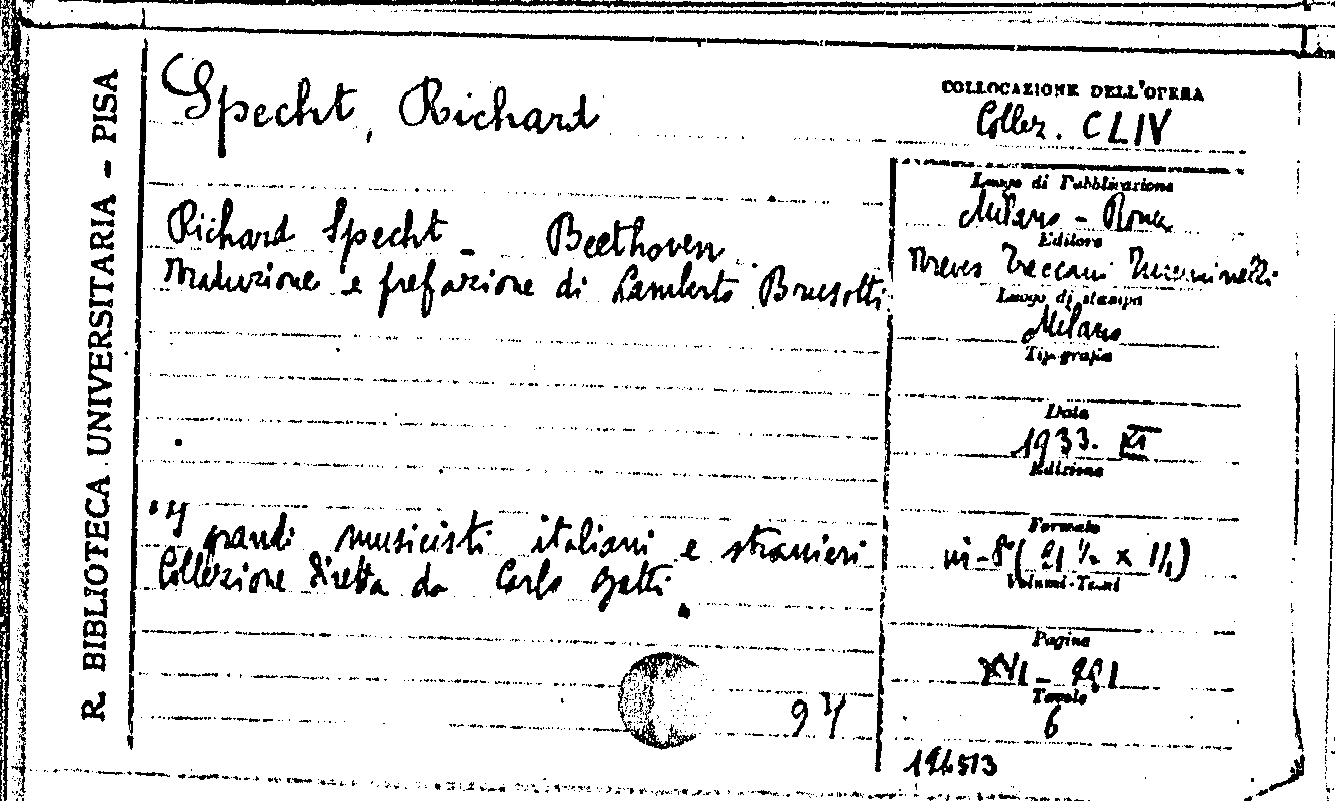 R. BIBLIOTECA UNIVERSITARIA - PISA
Specht, Richard
Richard Specht - Beethoven
Traduzione e prefazione di Lamberto Brusotti
"I grandi musicisti italiani e stranieri
Collezione diretta da Carlo Gatti.
COLLOCAZIONE DELL'OPERA
Collez. CLIV
Luogo di Pubblicazione
Milano - Roma
Editore
Treves Treccani Tumminelli
Luogo di stampa
Milano
Tipografia
Data
1933. XI
Edizione
Formato
in-8° (21 ½ x
Volumi-Tomi
Pagine
XVI -
Tavole
6